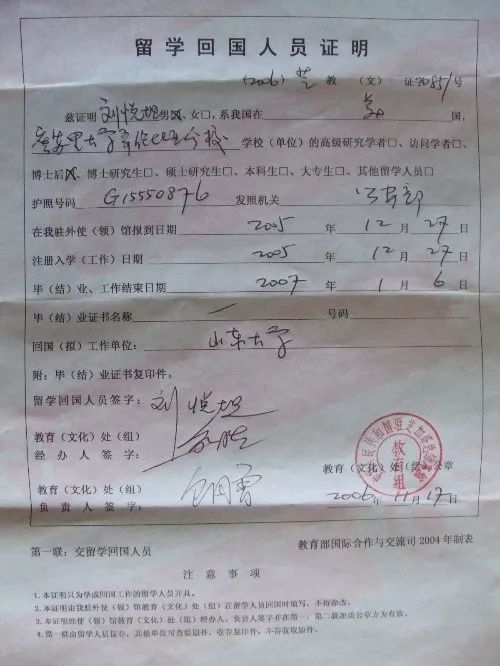 留学回国人员证明
(2006)芝 教 (文) 证字0851号
兹证明 刘悦坦 男☒、女□,系我国在 美 国,
大学 分校 学校(单位)的高级研究学者□、访问学者□、
博士后☒、博士研究生□、硕士研究生□、本科生□、大专生□、其他留学人员□
护照号码 G15550876 发照机关 公安部
在我驻外使(领)馆报到日期 2005 年 12 月 27 日
注册入学(工作)日期 2005 年 12 月 27 日
毕(结)业、工作结束日期 2007 年 1 月 6 日
毕(结)业证书名称 — 号码
回国(拟)工作单位: 山东大学
附:毕(结)业证书复印件。
留学回国人员签字: 刘悦坦
教育(文化)处(组)
经办人签字:
教育(文化)处(组)公章
教育组
教育(文化)处(组)
负责人签字:
2006年11月17日
第一联:交留学回国人员
教育部国际合作与交流司2004年制表
注意事项
1.本证明只为学成回国工作的留学人员开具。
2.本证明由我驻外使(领)馆教育(文化)处(组)在留学人员回国时填写,不得涂改。
3.本证明经使(领)馆教育(文化)处(组)经办人、负责人签字并在第一、第二联加盖公章方为有效。
4.第一联由留学人员保存,其他单位可查验原件,收存复印件,不得收取原件。